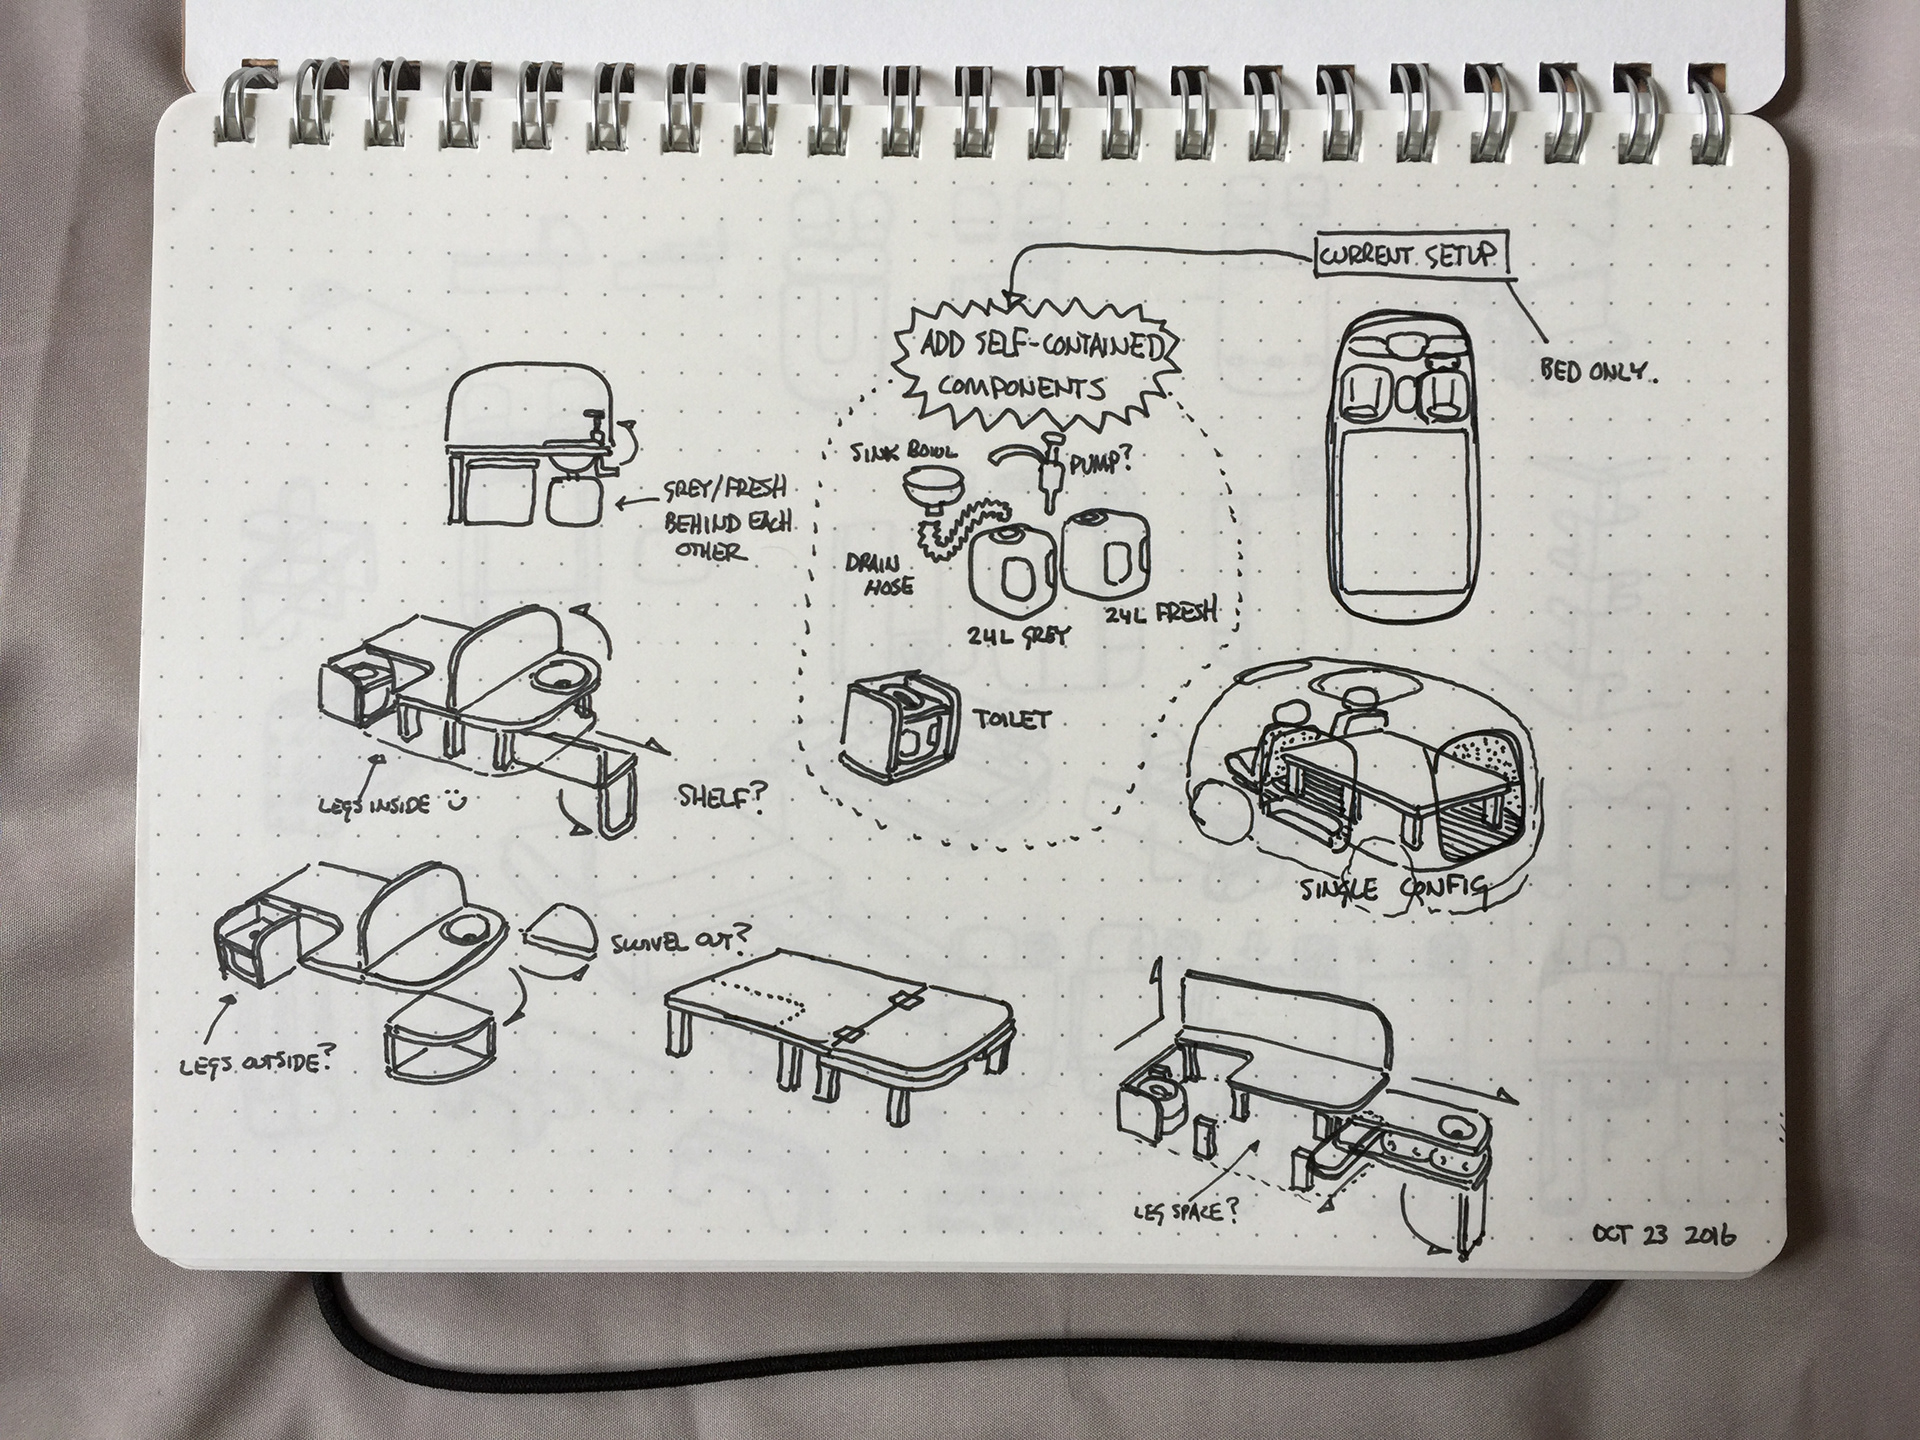 CURRENT SETUP
BED ONLY.
ADD SELF-CONTAINED
COMPONENTS
SINK BOWL
PUMP?
DRAIN
HOSE
24L GREY
24L FRESH
TOILET
GREY/FRESH
BEHIND EACH
OTHER
LEGS INSIDE
SHELF?
SINGLE CONFIG
SWIVEL OUT?
LEGS OUTSIDE?
LEG SPACE?
OCT 23 2016